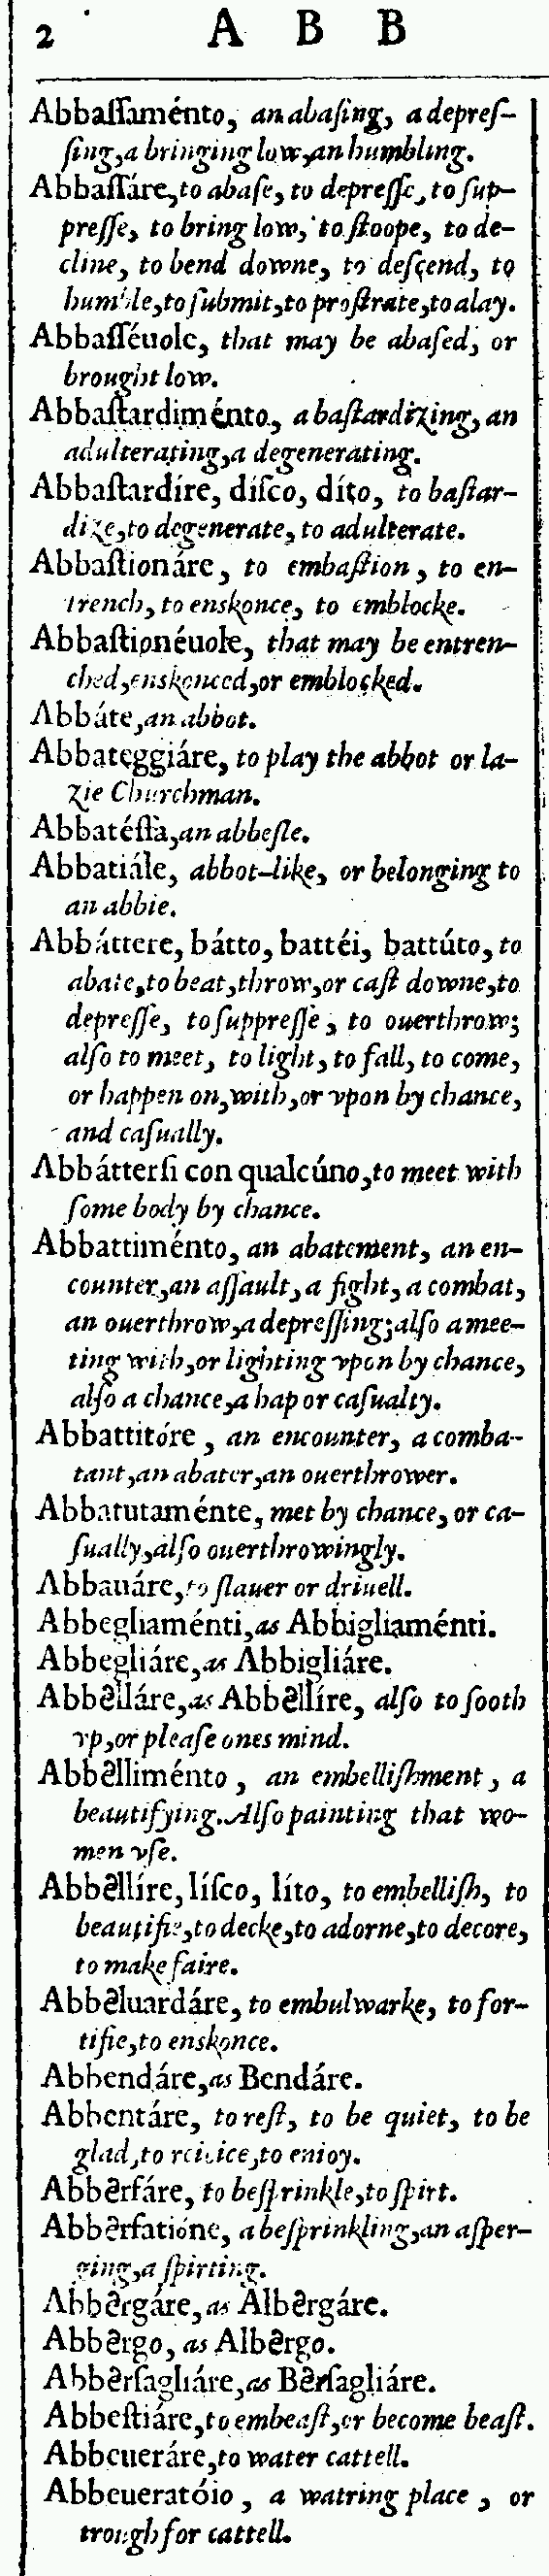 2 A B B
Abbaſſaménto, an abaſing, a depreſ-
ſing, a bringing low, an humbling.
Abbaſſáre, to abaſe, to depreſſe, to ſup-
preſſe, to bring low, to ſtoope, to de-
cline, to bend downe, to deſcend, to
humble, to ſubmit, to proſtrate, to alay.
Abbaſſéuole, that may be abaſed, or
brought low.
Abbaſtardiménto, a baſtardizing, an
adulterating, a degenerating.
Abbaſtardíre, díſco, díto, to baſtar-
dize, to degenerate, to adulterate.
Abbaſtionáre, to embaſtion, to en-
trench, to enskonce, to emblocke.
Abbaſtionéuole, that may be entren-
ched, enskonced, or emblocked.
Abbáte, an abbot.
Abbateggiáre, to play the abbot or la-
zie Churchman.
Abbatéſſa, an abbeſſe.
Abbatiále, abbot-like, or belonging to
an abbie.
Abbáttere, bátto, battéi, battúto, to
abate, to beat, throw, or caſt downe, to
depreſſe, to ſuppreſſe, to ouerthrow;
alſo to meet, to light, to fall, to come,
or happen on, with, or vpon by chance,
and caſually.
Abbátterſi con qualcúno, to meet with
ſome body by chance.
Abbattiménto, an abatement, an en-
counter, an aſſault, a fight, a combat,
an ouerthrow, a depreſſing; alſo a mee-
ting with, or lighting vpon by chance,
alſo a chance, a hap or caſualty.
Abbattitóre, an encounter, a comba-
tant, an abater, an ouerthrower.
Abbatutaménte, met by chance, or ca-
ſually, alſo ouerthrowingly.
Abbauáre, to ſlauer or driuell.
Abbegliaménti, as Abbigliaménti.
Abbegliáre, as Abbigliáre.
Abbelláre, as Abbellíre, alſo to ſooth
vp, or pleaſe ones mind.
Abbelliménto, an embelliſhment, a
beautifying. Alſo painting that wo-
men vſe.
Abbellíre, líſco, líto, to embelliſh, to
beautifie, to decke, to adorne, to decore,
to make faire.
Abbeluardáre, to embulwarke, to for-
tifie, to enskonce.
Abbendáre, as Bendáre.
Abbentáre, to reſt, to be quiet, to be
glad, to reioice, to enioy.
Abberſáre, to beſprinkle, to ſpirt.
Abberſatióne, a beſprinkling, an aſper-
ging, a ſpirting.
Abbergáre, as Albergáre.
Abbergo, as Albergo.
Abberſagliáre, as Berſagliáre.
Abbeſtiáre, to embeaſt, or become beaſt.
Abbeueráre, to water cattell.
Abbeueratóio, a watring place, or
trough for cattell.